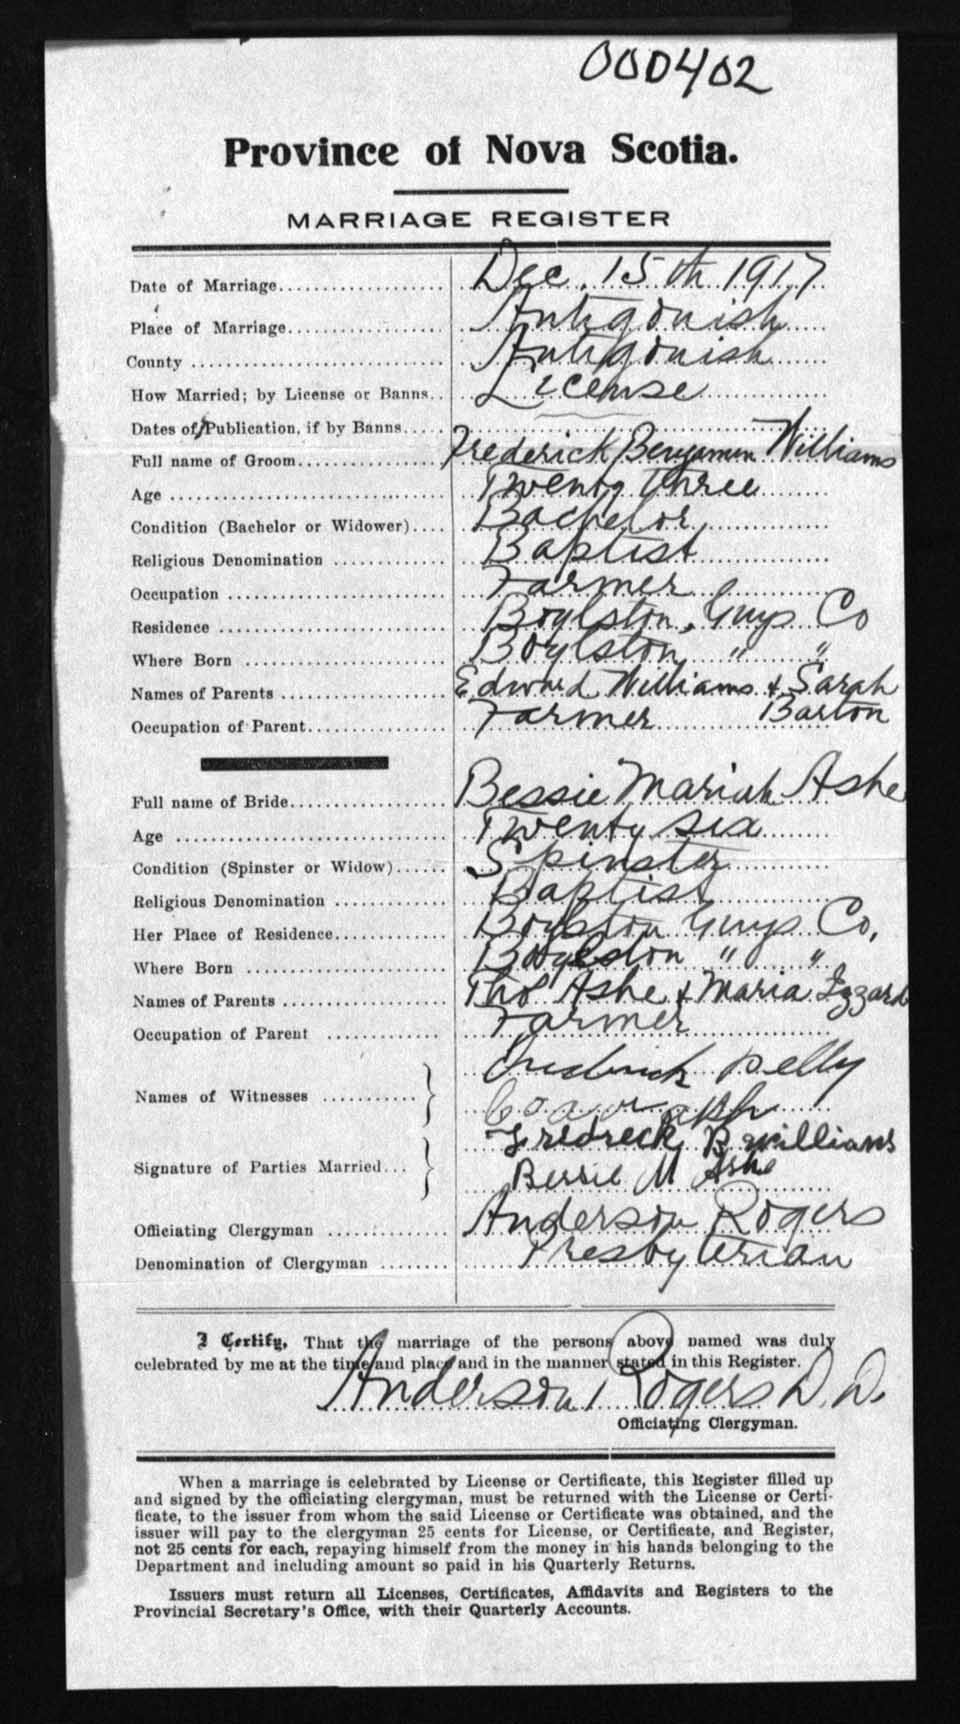 000402
Province of Nova Scotia.
MARRIAGE REGISTER
Date of Marriage.................... Dec. 15th 1917
Place of Marriage................... Antigonish
County ............................. Antigonish
How Married; by License or Banns.. License
Dates of Publication, if by Banns.....
Full name of Groom.................. Frederick Benjamin Williams
Age ................................ Twenty three
Condition (Bachelor or Widower).... Bachelor
Religious Denomination ............. Baptist
Occupation ......................... Farmer
Residence .......................... Boylston, Guys Co
Where Born ......................... Boylston " "
Names of Parents ................... Edward Williams & Sarah
Barton
Occupation of Parent................ Farmer
Full name of Bride.................. Bessie Mariah Ashe
Age ................................ Twenty six
Condition (Spinster or Widow)...... Spinster
Religious Denomination ............. Baptist
Her Place of Residence............. Boylston Guys Co,
Where Born ......................... Boylston " "
Names of Parents ................... Thos Ashe & Maria Izzard
Occupation of Parent .............. Farmer
Names of Witnesses ........... } Fredrick Pelly
Signature of Parties Married... } Fredreck B williams
Bessie M Ashe
Officiating Clergyman .............. Anderson Rogers
Denomination of Clergyman ........ Presbyterian
I Certify, That the marriage of the persons above named was duly
celebrated by me at the time and place and in the manner stated in this Register.
Anderson Rogers D. D.
Officiating Clergyman.
When a marriage is celebrated by License or Certificate, this Register filled up
and signed by the officiating clergyman, must be returned with the License or Certi-
ficate, to the issuer from whom the said License or Certificate was obtained, and the
issuer will pay to the clergyman 25 cents for License, or Certificate, and Register,
not 25 cents for each, repaying himself from the money in his hands belonging to the
Department and including amount so paid in his Quarterly Returns.
Issuers must return all Licenses, Certificates, Affidavits and Registers to the
Provincial Secretary's Office, with their Quarterly Accounts.